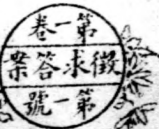 第一卷
徵求答案
第一號